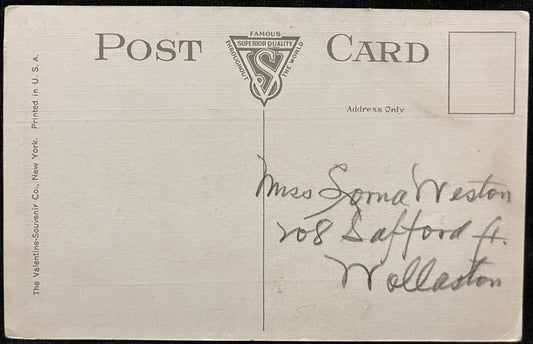 POST CARD
FAMOUS
SUPERIOR QUALITY
THROUGHOUT
THE WORLD
VS
Address Only
The Valentine-Souvenir Co., New York. Printed in U. S. A.
Miss Sorna Weston
208 Safford St.
Wollaston